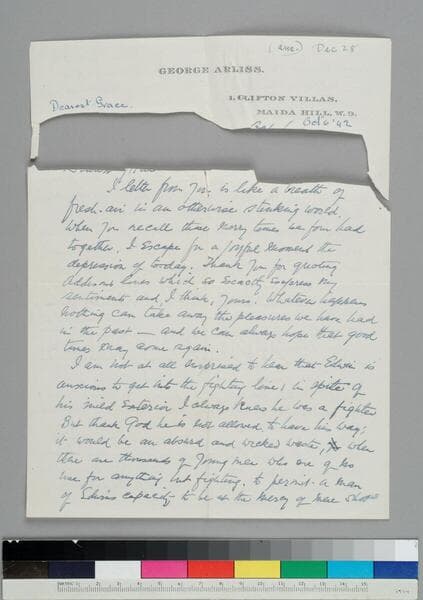 (ans.) Dec 28
GEORGE ARLISS.
1, CLIFTON VILLAS,
MAIDA HILL, W.9.
Dearest Grace.
Oct 6 '42
A letter from you is like a breath of
fresh air in an otherwise stinking world.
When you recall those merry times we four had
together, I escape for a joyful moment the
depression of today. Thank you for quoting
Addisons lines which so exactly express my
sentiments and, I think, yours. Whatever happens
nothing can take away the pleasures we have had
in the past — and we can always hope that good
times may come again.
I am not at all surprised to hear that Edwin is
anxious to get into the fighting line; in spite of
his mild exterior I always knew he was a fighter
But thank God he is not allowed to have his way;
it would be an absurd and wicked waste, when
there are thousands of young men who are of no
use for anything but fighting, to permit a man
of Edwins capacity to be at the mercy of mere